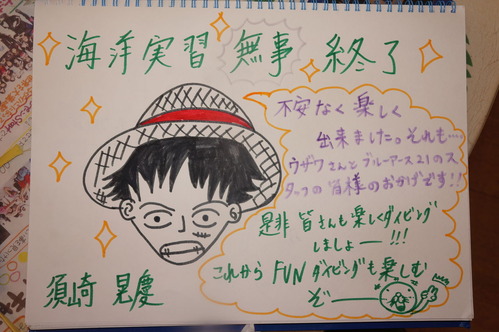 海洋実習 無事 終了
不安なく楽しく
出来ました。それも…
ウザワさんとブルーアース21のス
タッフの皆様のおかげです!!
是非 皆さんも楽しくダイビング
しましょー!!!
これから FUN ダイビングも楽しむ
ぞー
須崎 晃慶